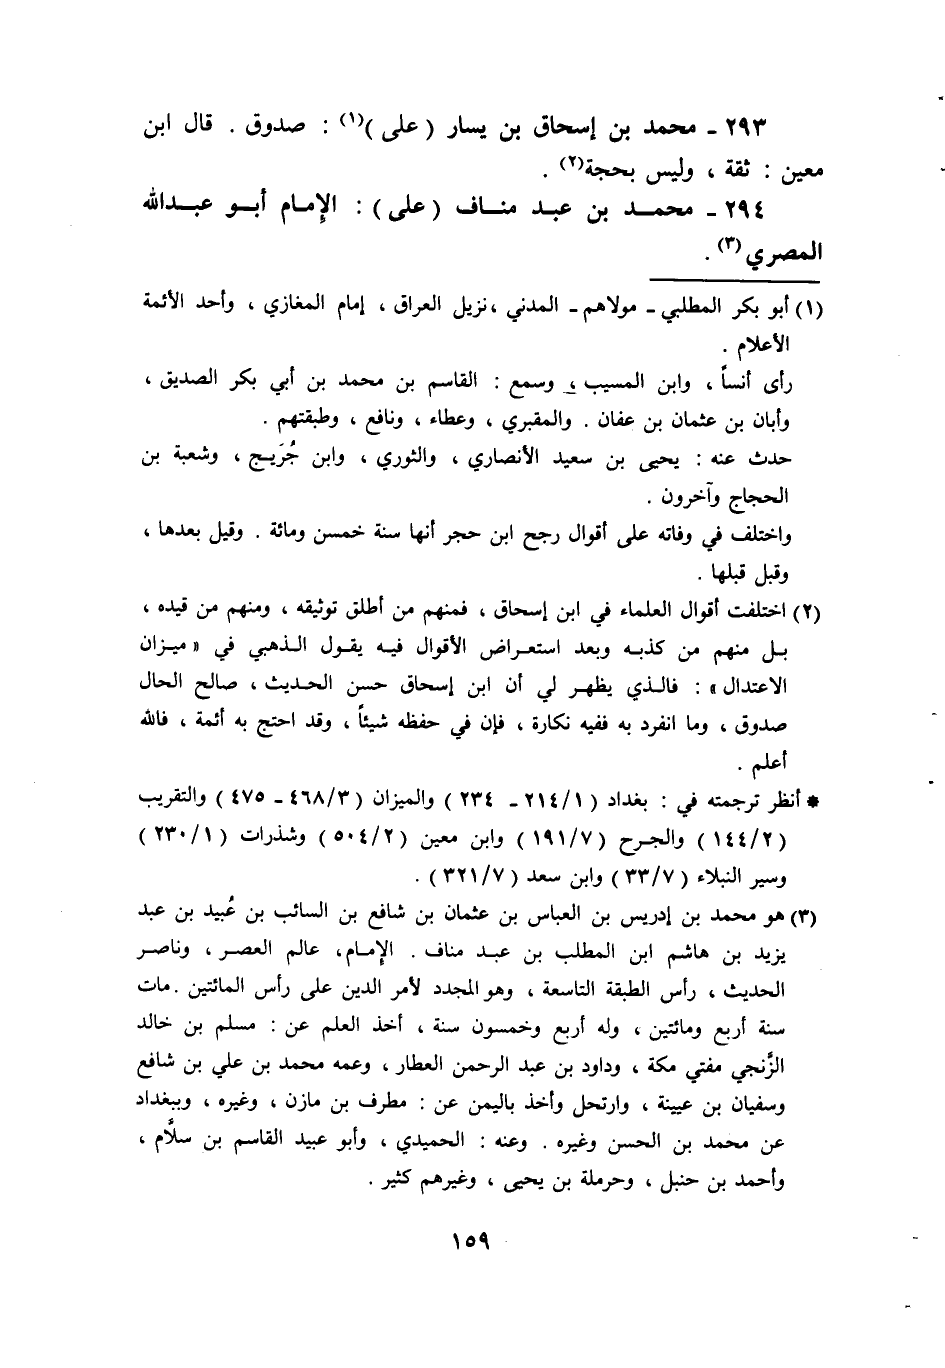 ٢٩٣ ـ محمد بن إسحاق بن يسار ( على )(١) : صدوق . قال ابن
معين : ثقة ، وليس بحجة(٢) .
٢٩٤ ـ محمـد بن عبد منـاف ( على ) : الإمـام أبـو عبـدالله
المصري(٣) .
(١) أبو بكر المطلبي ـ مولاهم ـ المدني ،نزيل العراق ، إمام المغازي ، وأحد الأئمة
الأعلام .
رأى أنساً ، وابن المسيب ، وسمع : القاسم بن محمد بن أبي بكر الصديق ،
وأبان بن عثمان بن عفان . والمقبري ، وعطاء ، ونافع ، وطبقتهم .
حدث عنه : يحيى بن سعيد الأنصاري ، والثوري ، وابن جُرَيـج ، وشعبة بن
الحجاج وآخرون .
واختلف في وفاته على أقوال رجح ابن حجر أنها سنة خمسن ومائة . وقيل بعدها ،
وقبل قبلها .
(٢) اختلفت أقوال العلماء في ابن إسحاق ، فمنهم من أطلق توثيقه ، ومنهم من قيده ،
بـل منهم من كذبـه وبعد استعـراض الأقوال فيـه يقـول الـذهبي في « ميـزان
الاعتدال » : فالـذي يظهـر لي أن ابن إسحاق حسن الحـديث ، صالح الحال
صدوق ، وما انفرد به ففيه نكارة ، فإن في حفظه شيئاً ، وقد احتج به أئمة ، فالله
أعلم .
* أنظر ترجمته في : بغداد ( ٢١٤/١ ـ ٢٣٤ ) والميزان ( ٤٦٨/٣ ـ ٤٧٥ ) والتقريب
( ١٤٤/٢ ) والجـرح ( ١٩١/٧ ) وابن معين ( ٥٠٤/٢ ) وشذرات ( ٢٣٠/١ )
وسير النبلاء ( ٣٣/٧ ) وابن سعد ( ٣٢١/٧ ) .
(٣) هو محمد بن إدريس بن العباس بن عثمان بن شافع بن السائب بن عُبيد بن عبد
يزيد بن هاشم ابن المطلب بن عبـد مناف . الإمـام، عالم العصـر ، وناصـر
الحديث ، رأس الطبقة التاسعة ، وهو المجدد لأمر الدين على رأس المائتين .مات
سنة أربع ومائتين ، وله أربع وخمسون سنة ، أخذ العلم عن : مسلم بن خالد
الزَّنجي مفتي مكة ، وداود بن عبد الرحمن العطار ، وعمه محمد بن علي بن شافع
وسفيان بن عيينة ، وارتحل وأخذ باليمن عن : مطرف بن مازن ، وغيره ، وببغداد
عن محمد بن الحسن وغيره . وعنه : الحميدي ، وأبو عبيد القاسم بن سلاَّم ،
وأحمد بن حنبل ، وحرملة بن يحيى ، وغيرهم كثير .
١٥٩